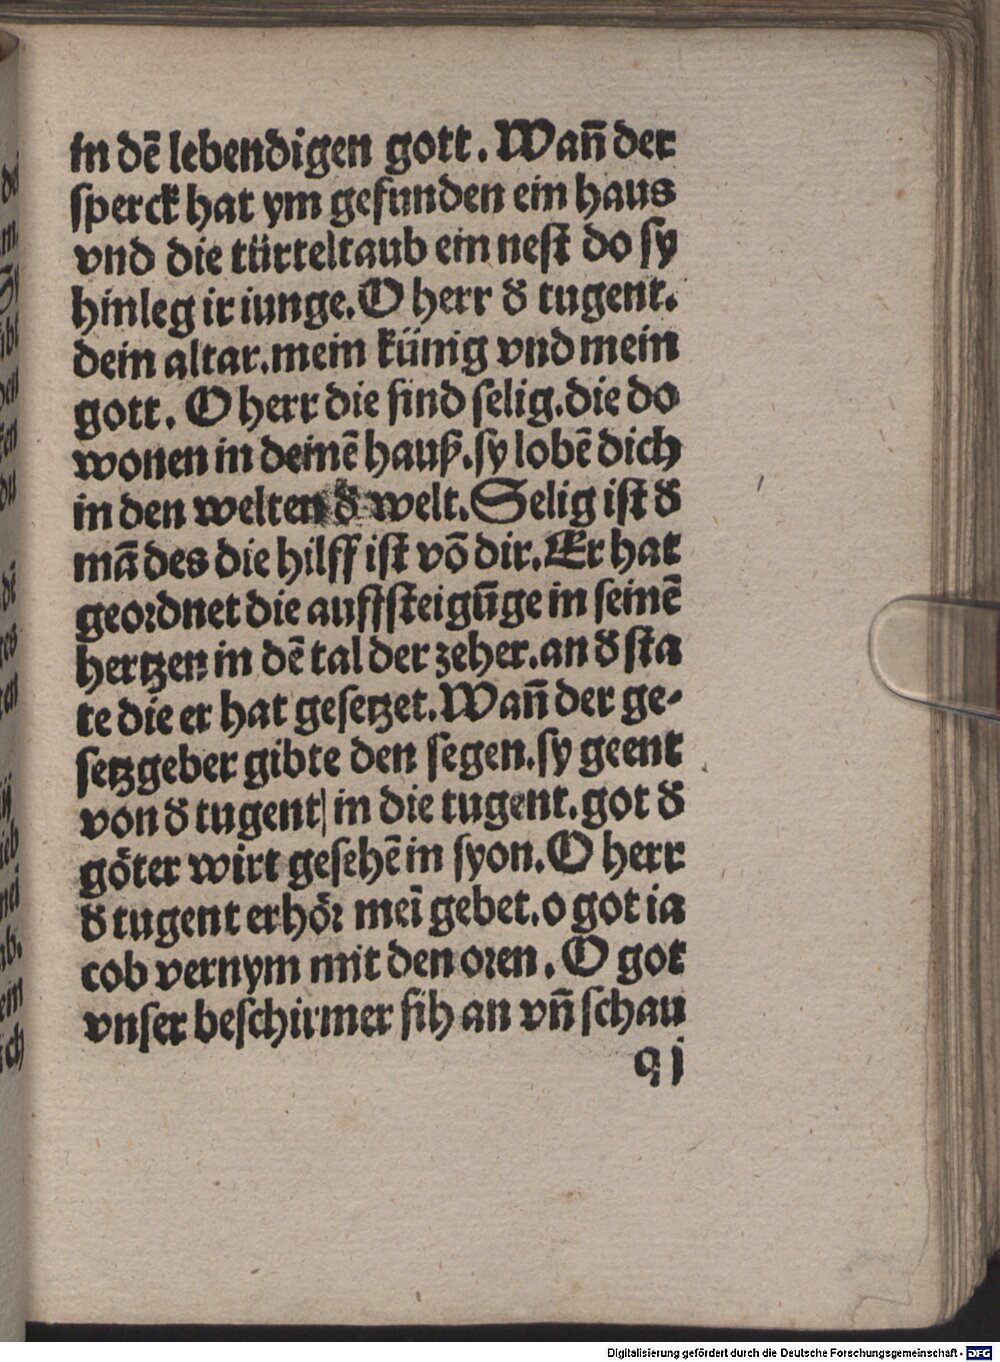 in dē lebendigen gott. Wañ der
sperck hat ym gefunden ein haus
vnd die türteltaub ein nest do sy
hinleg ir iunge. O herr đ tugent.
dein altar. mein künig vnd mein
gott. O herr die sind selig. die do
wonen in deinē hauß. sy lobē dich
in den welten đ welt. Selig ist đ
mā des die hilff ist vō dir. Er hat
geordnet die auffsteigūge in seinē
hertzen in dē tal der zeher. an đ sta
te die er hat gesetzet. Wañ der ge-
setzgeber gibte den segen. sy geent
von đ tugent in die tugent. got đ
göter wirt gesehē in syon. O herr
đ tugent erhör mei̅ gebet. o got ia
cob vernym mit den oren. O got
vnser beschirmer sih an vñ schau
q j
Digitalisierung gefördert durch die Deutsche Forschungsgemeinschaft - DFG